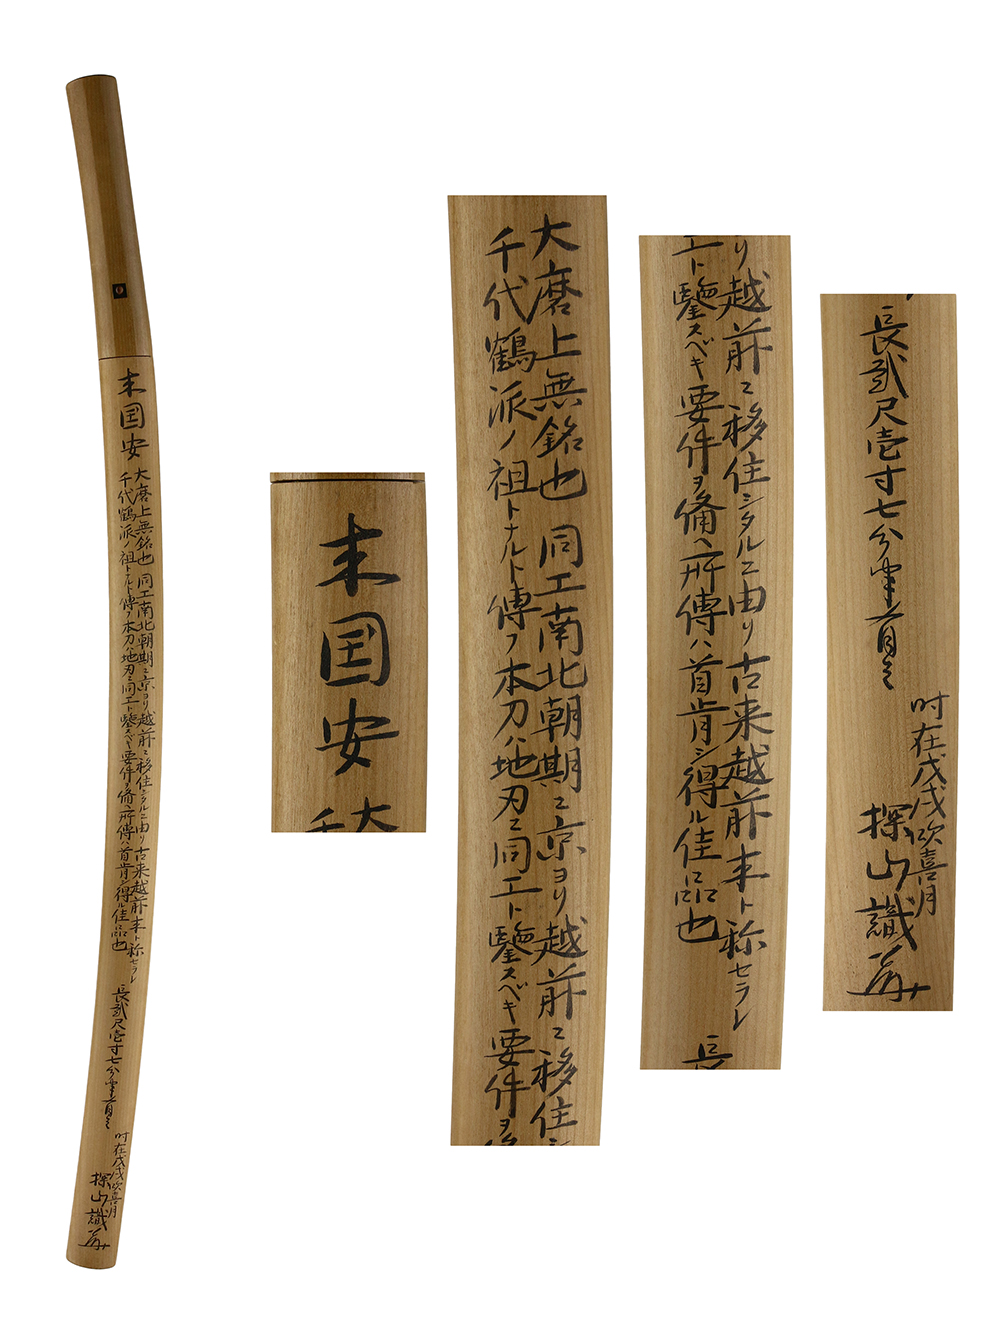 来国安
大磨上無銘也 同工南北朝期ニ京ヨリ越前ニ移住シタルニ由リ古来越前来ト称セラレ
千代鶴派ノ祖トナルト傳フ本刀ハ地刃ニ同工ト鑒スベキ要件ヲ備ヘ所傳ハ首肯シ得ル佳品也
長貮尺壱寸七分半有之
时在戊戌吹喜月
探山識
来国安
大
千
大磨上無銘也 同工南北朝期ニ京ヨリ越前ニ移住シ
千代鶴派ノ祖トナルト傳フ本刀ハ地刃ニ同工ト鑒スベキ要件ヲ備
リ越前ニ移住シタルニ由リ古来越前来ト称セラレ
工ト鑒スベキ要件ヲ備ヘ所傳ハ首肯シ得ル佳品也
長
長貮尺壱寸七分半有之
时在戊戌吹喜月
探山識